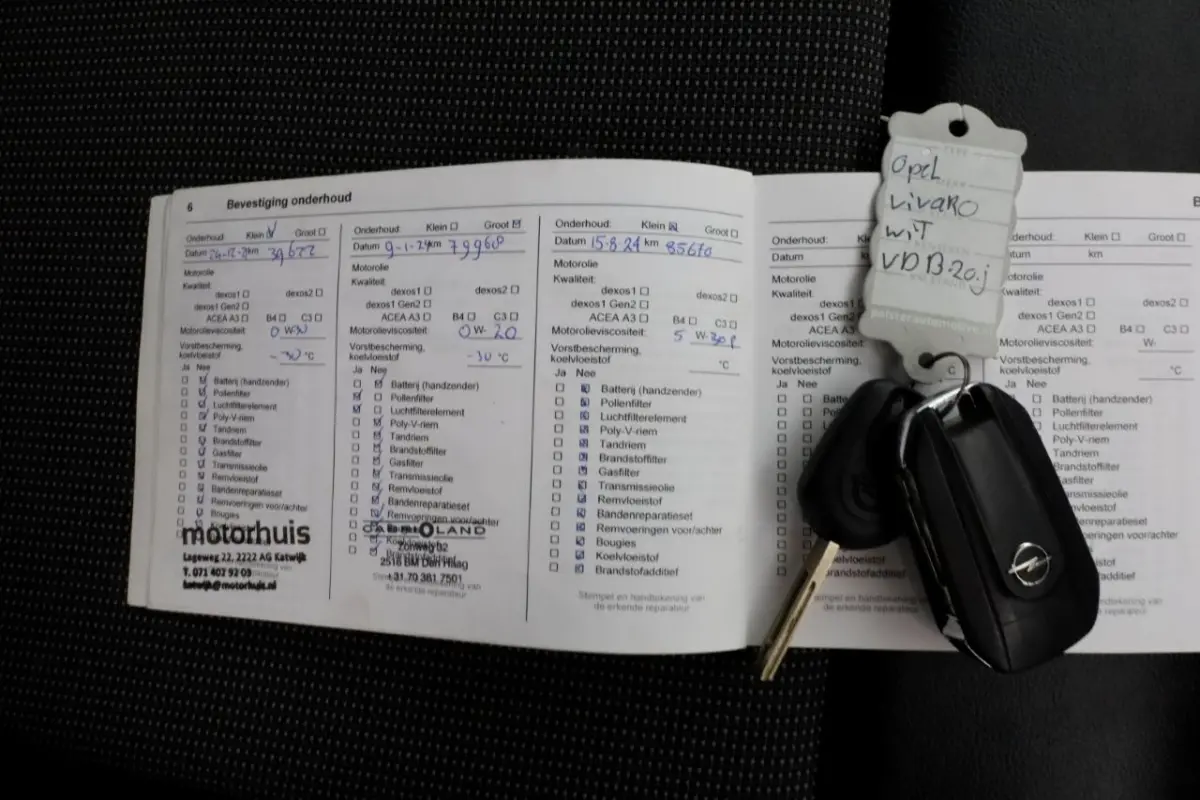 6 Bevestiging onderhoud
Onderhoud: Klein Groot
km 39622
Motorolie
Kwaliteit:
dexos1 dexos2
dexos1 Gen2
ACEA A3 B4 C3
Motorolieviscositeit: 0 W-
Vorstbescherming,
koelvloeistof -30 °C
Ja Nee
Batterij (handzender)
Pollenfilter
Luchtfilterelement
Poly-V-riem
Tandriem
Brandstoffilter
Gasfilter
Transmissieolie
Remvloeistof
Bandenreparatieset
Remvoeringen voor/achter
Bougies
motorhuis
Lageweg 22, 2222 AG Katwijk
T. 071 402 92 03
katwijk@motorhuis.nl
Onderhoud: Klein Groot
Datum 9-1-24 km 79960
Motorolie
Kwaliteit:
dexos1 dexos2
dexos1 Gen2
ACEA A3 B4 C3
Motorolieviscositeit: 0 W- 20
Vorstbescherming,
koelvloeistof -30 °C
Ja Nee
Batterij (handzender)
Pollenfilter
Luchtfilterelement
Poly-V-riem
Tandriem
Brandstoffilter
Gasfilter
Transmissieolie
Remvloeistof
Bandenreparatieset
Remvoeringen voor/achter
Koelvloeistof
Brandstofadditief
Zonweg 82
2516 BM Den Haag
+31 70 381 7501
de erkende reparateur
Onderhoud: Klein Groot
Datum 15-8-24 km 85670
Motorolie
Kwaliteit:
dexos1 dexos2
dexos1 Gen2
ACEA A3 B4 C3
Motorolieviscositeit: 5 W-30
Vorstbescherming, °C
koelvloeistof
Ja Nee
Batterij (handzender)
Pollenfilter
Luchtfilterelement
Poly-V-riem
Tandriem
Brandstoffilter
Gasfilter
Transmissieolie
Remvloeistof
Bandenreparatieset
Remvoeringen voor/achter
Bougies
Koelvloeistof
Brandstofadditief
Stempel en handtekening van
de erkende reparateur
Onderhoud:
Datum
Motorolie
Kwaliteit:
dexos1
dexos1 Gen2
ACEA A3
Motorolieviscositeit:
Vorstbescherming,
koelvloeistof
Ja Nee
Opel
VIVARO
WIT
VDB-20-j
Klein Groot
km
dexos1 dexos2
dexos1 Gen2
ACEA A3 B4 C3
Motorolieviscositeit: W-
Vorstbescherming,
koelvloeistof °C
Ja Nee
Batterij (handzender)
Pollenfilter
Luchtfilterelement
Poly-V-riem
Tandriem
Brandstoffilter
Gasfilter